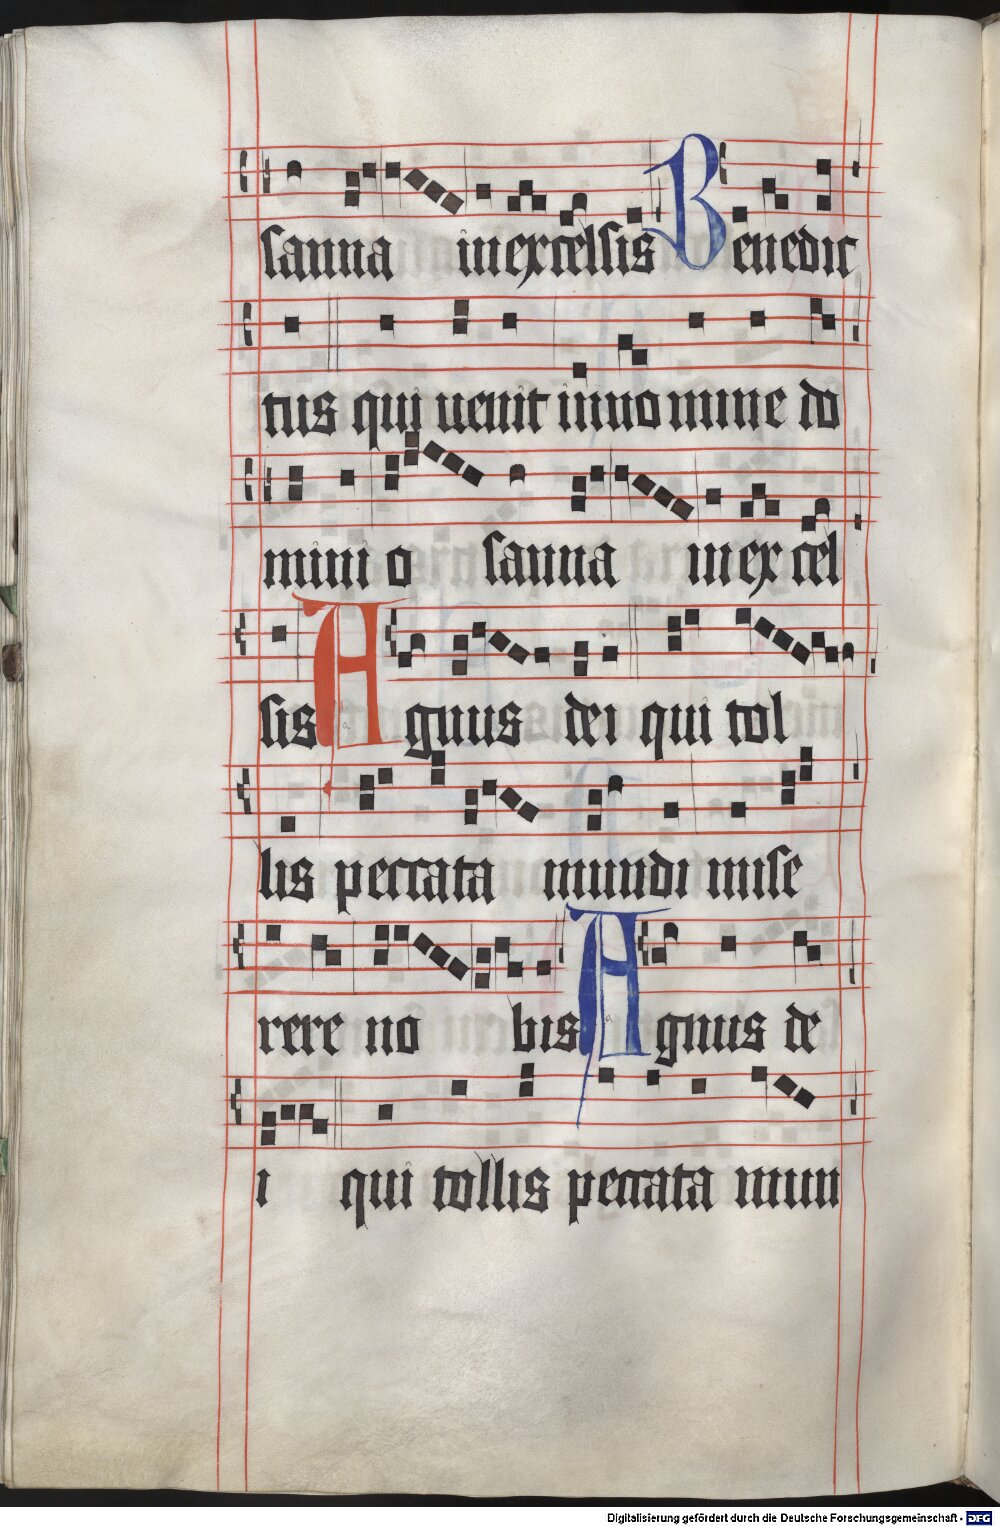 sanna in excelsis Benedic
tus qui uenit in nomine do
mini o sanna in excel
sis Agnus dei qui tol
lis peccata mundi mise
rere no bis Agnus de
i qui tollis peccata mun
Digitalisierung gefördert durch die Deutsche Forschungsgemeinschaft - DFG